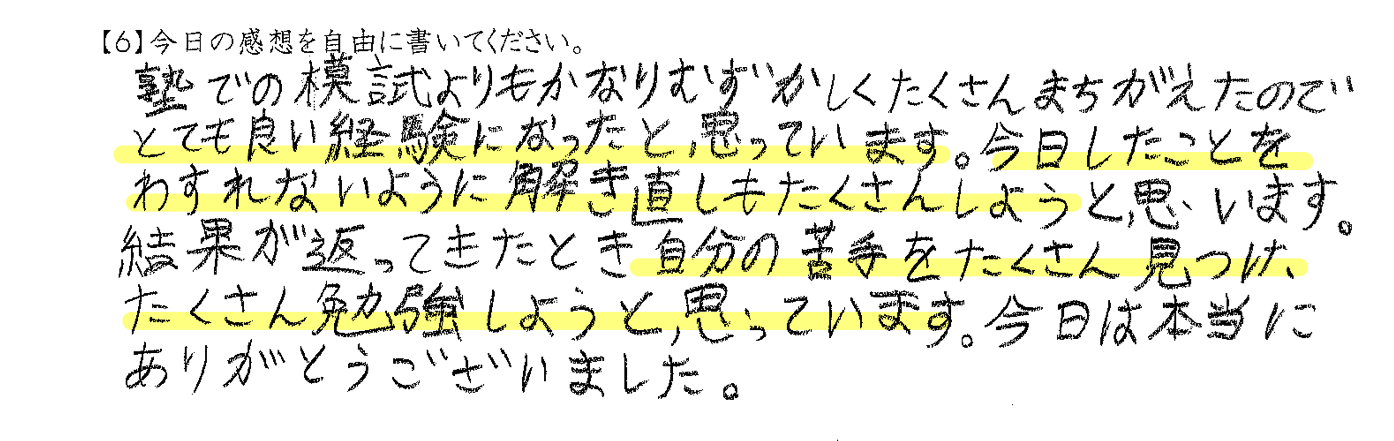 【6】今日の感想を自由に書いてください。
塾での模試よりもかなりむずかしくたくさんまちがえたので
とても良い経験になったと思っています。今日したことを
わすれないように解き直しもたくさんしようと思います。
結果が返ってきたとき自分の苦手をたくさん見つけ、
たくさん勉強しようと思っています。今日は本当に
ありがとうございました。